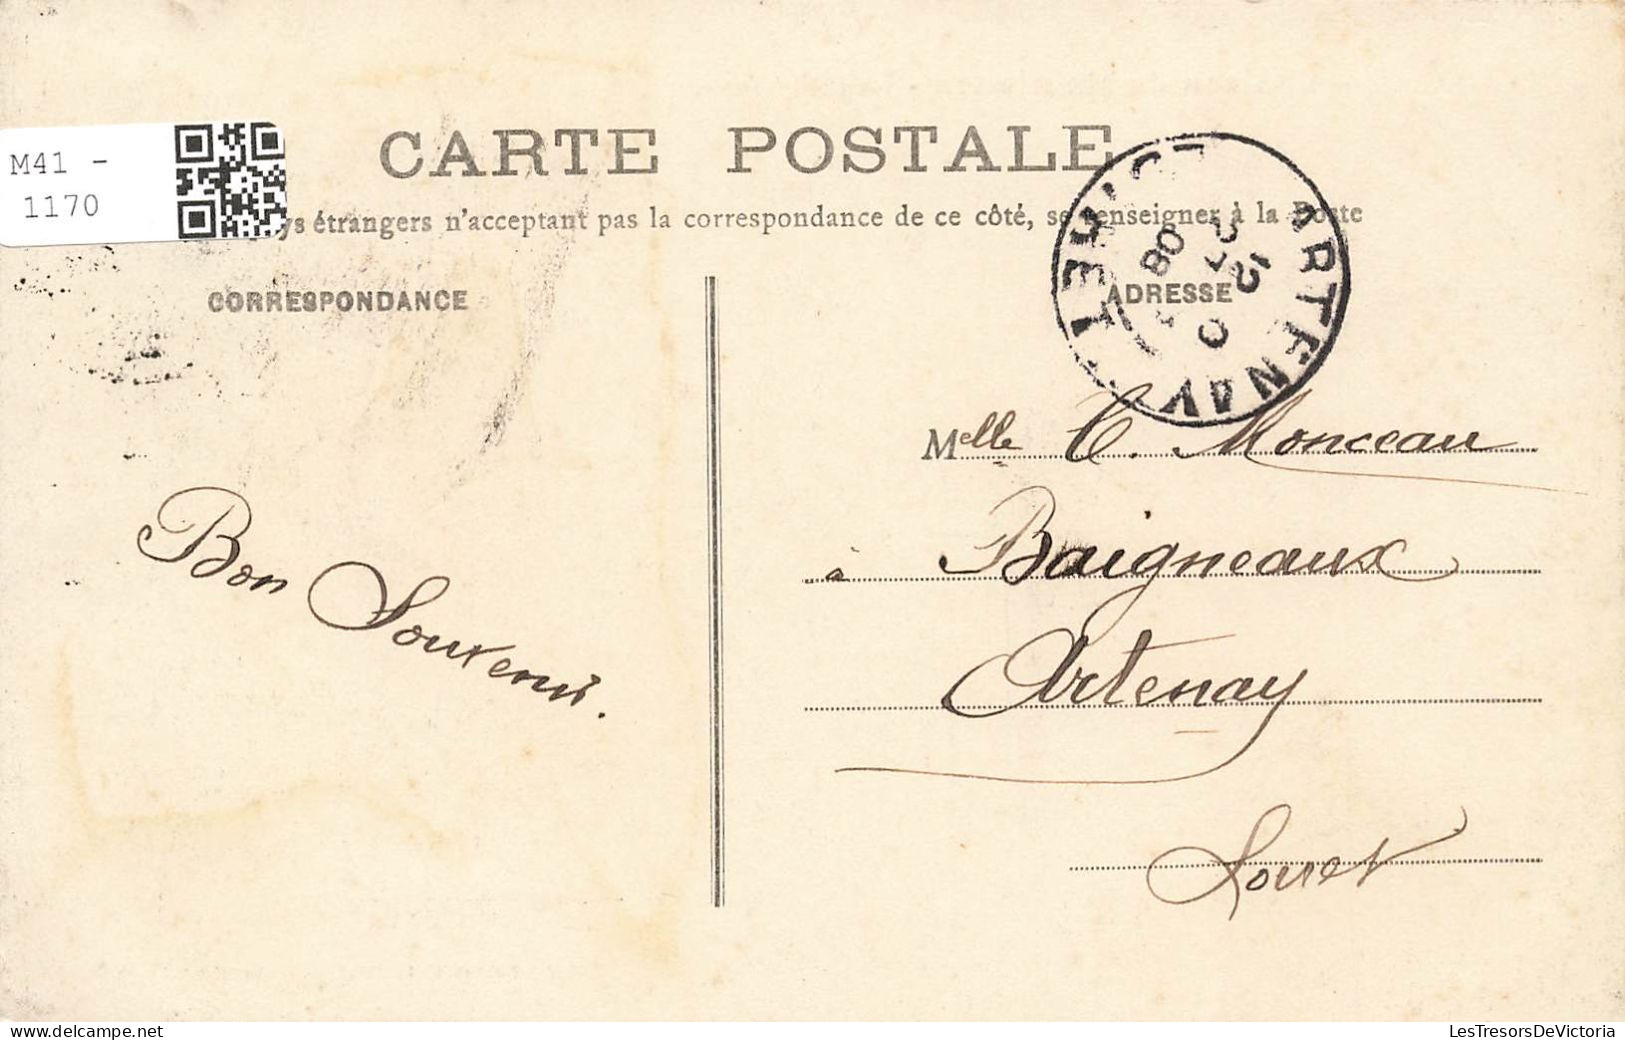 CARTE POSTALE
M41 -
1170
étrangers n'acceptant pas la correspondance de ce côté, se renseigner à la Poste
CORRESPONDANCE
ADRESSE
ARTENAY
LOIRET
08
Melle C. Monceau
à Baigneaux
Artenay
Loiret
Bon Souvenir.
delcampe.net
LesTresorsDeVictoria